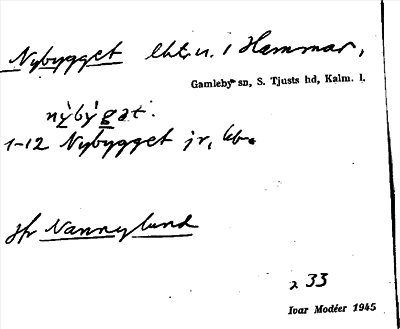 Nybygget lht u. i Hammar,
Gamleby sn, S. Tjusts hd, Kalm. l.
nỳbýgat.
1-12 Nybygget jr, kb.
jfr Nannylund
2 33
Ivar Modéer 1945